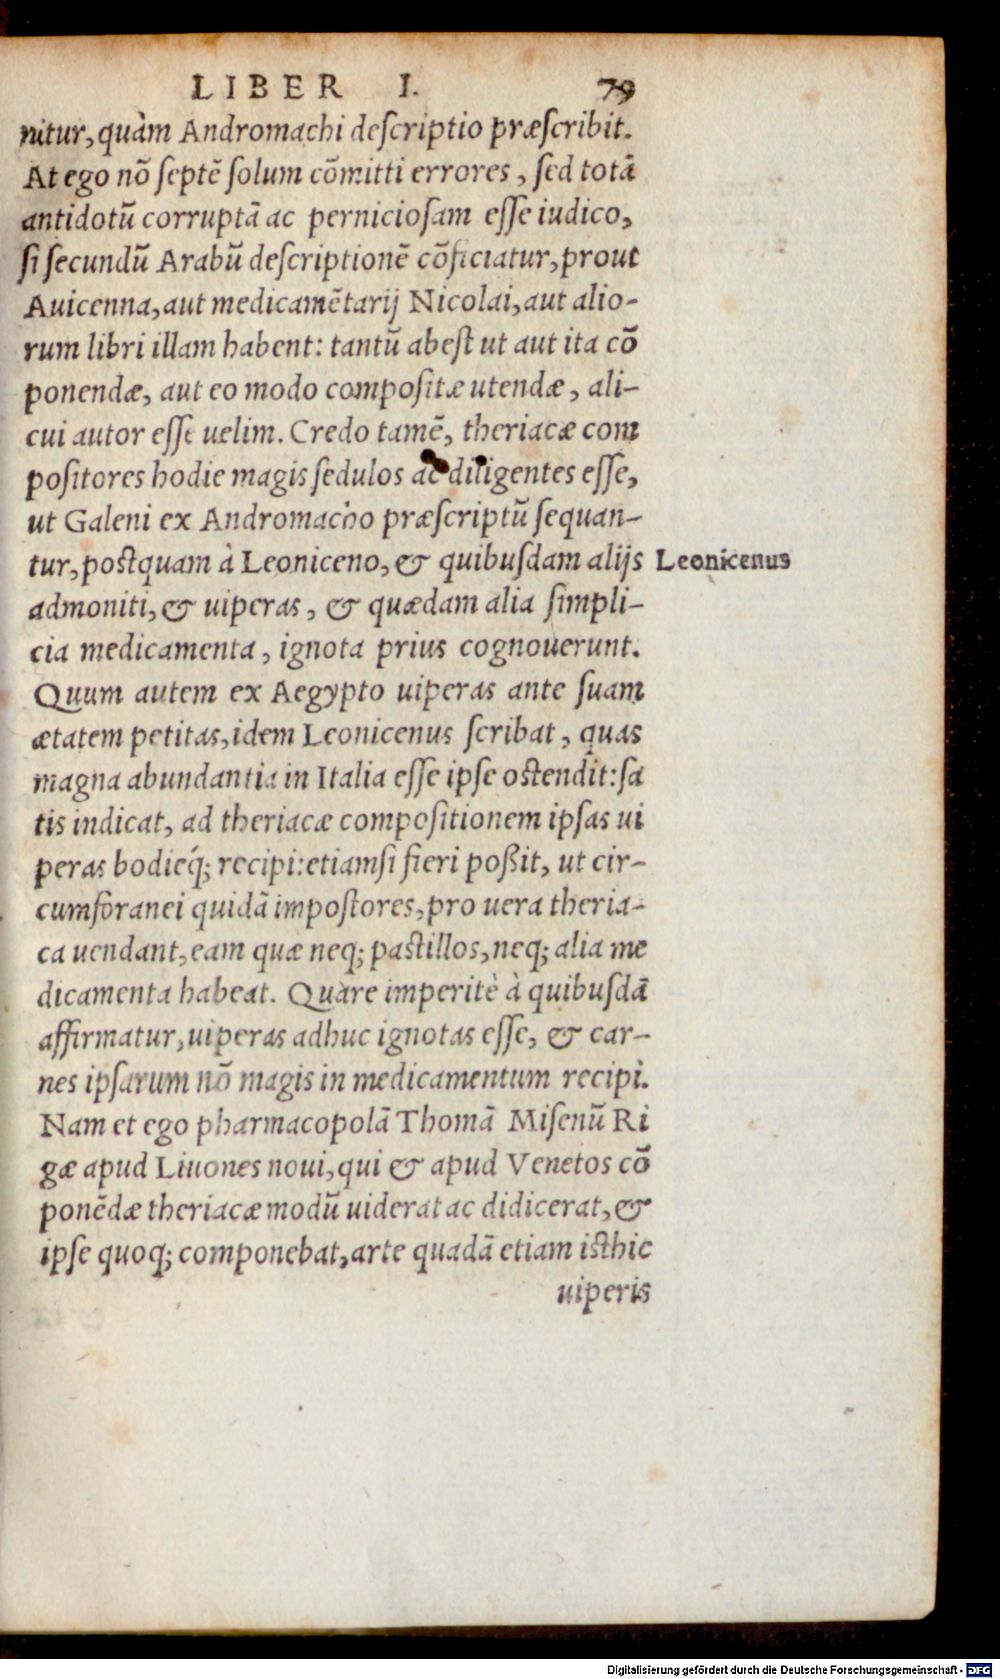 LIBER I. 79
nitur, quàm Andromachi descriptio præscribit.
At ego nõ septẽ solum cõmitti errores, sed totã
antidotũ corruptã ac perniciosam esse iudico,
si secundũ Arabũ descriptionẽ cõficiatur, prout
Auicenna, aut medicamẽtarij Nicolai, aut alio-
rum libri illam habent: tantũ abest ut aut ita cõ
ponendæ, aut eo modo compositæ utendæ, ali-
cui autor esse uelim. Credo tamẽ, theriacæ com
positores hodie magis sedulos ac diligentes esse,
ut Galeni ex Andromacho præscriptũ sequan-
tur, postquam à Leoniceno, & quibusdam alijs
Leonicenus
admoniti, & uiperas, & quædam alia simpli-
cia medicamenta, ignota prius cognouerunt.
Quum autem ex Aegypto uiperas ante suam
ætatem petitas, idem Leonicenus scribat, quas
magna abundantia in Italia esse ipse ostendit: sa
tis indicat, ad theriacæ compositionem ipsas ui
peras hodieq́; recipi: etiamsi fieri poßit, ut cir-
cumforanei quidã impostores, pro uera theria-
ca uendant, eam quæ neq; pastillos, neq; alia me
dicamenta habeat. Quare imperitè à quibusdã
affirmatur, uiperas adhuc ignotas esse, & car-
nes ipsarum nõ magis in medicamentum recipi.
Nam et ego pharmacopolã Thomã Misenũ Ri
gæ apud Liuones noui, qui & apud Venetos cõ
ponẽdæ theriacæ modũ uiderat ac didicerat, &
ipse quoq; componebat, arte quadã etiam isthic
uiperis
Digitalisierung gefördert durch die Deutsche Forschungsgemeinschaft - DFG